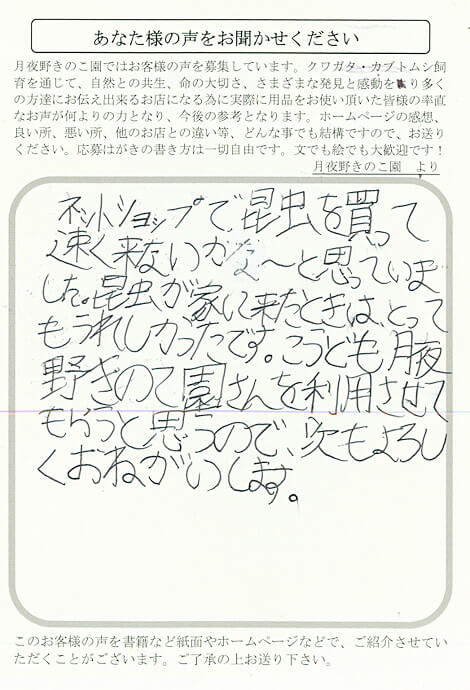 あなた様の声をお聞かせください
月夜野きのこ園ではお客様の声を募集しています。クワガタ・カブトムシ飼
育を通じて、自然との共生、命の大切さ、さまざまな発見と感動を り多く
の方達にお伝え出来るお店になる為に実際に用品をお使い頂いた皆様の率直
なお声が何よりの力となり、今後の参考となります。ホームページの感想、
良い所、悪い所、他のお店との違い等、どんな事でも結構ですので、お送り
ください。応募はがきの書き方は一切自由です。文でも絵でも大歓迎です！
月夜野きのこ園　より
ネットショップで昆虫を買って
速く来ないかな〜と思っていま
した。昆虫が家に来たときは、とって
もうれしかったです。こんども月夜
野きのこ園さんを利用させて
もらうと思うので、次もよろし
くおねがいします。
このお客様の声を書籍など紙面やホームページなどで、ご紹介させてい
ただくことがございます。ご了承の上お送り下さい。